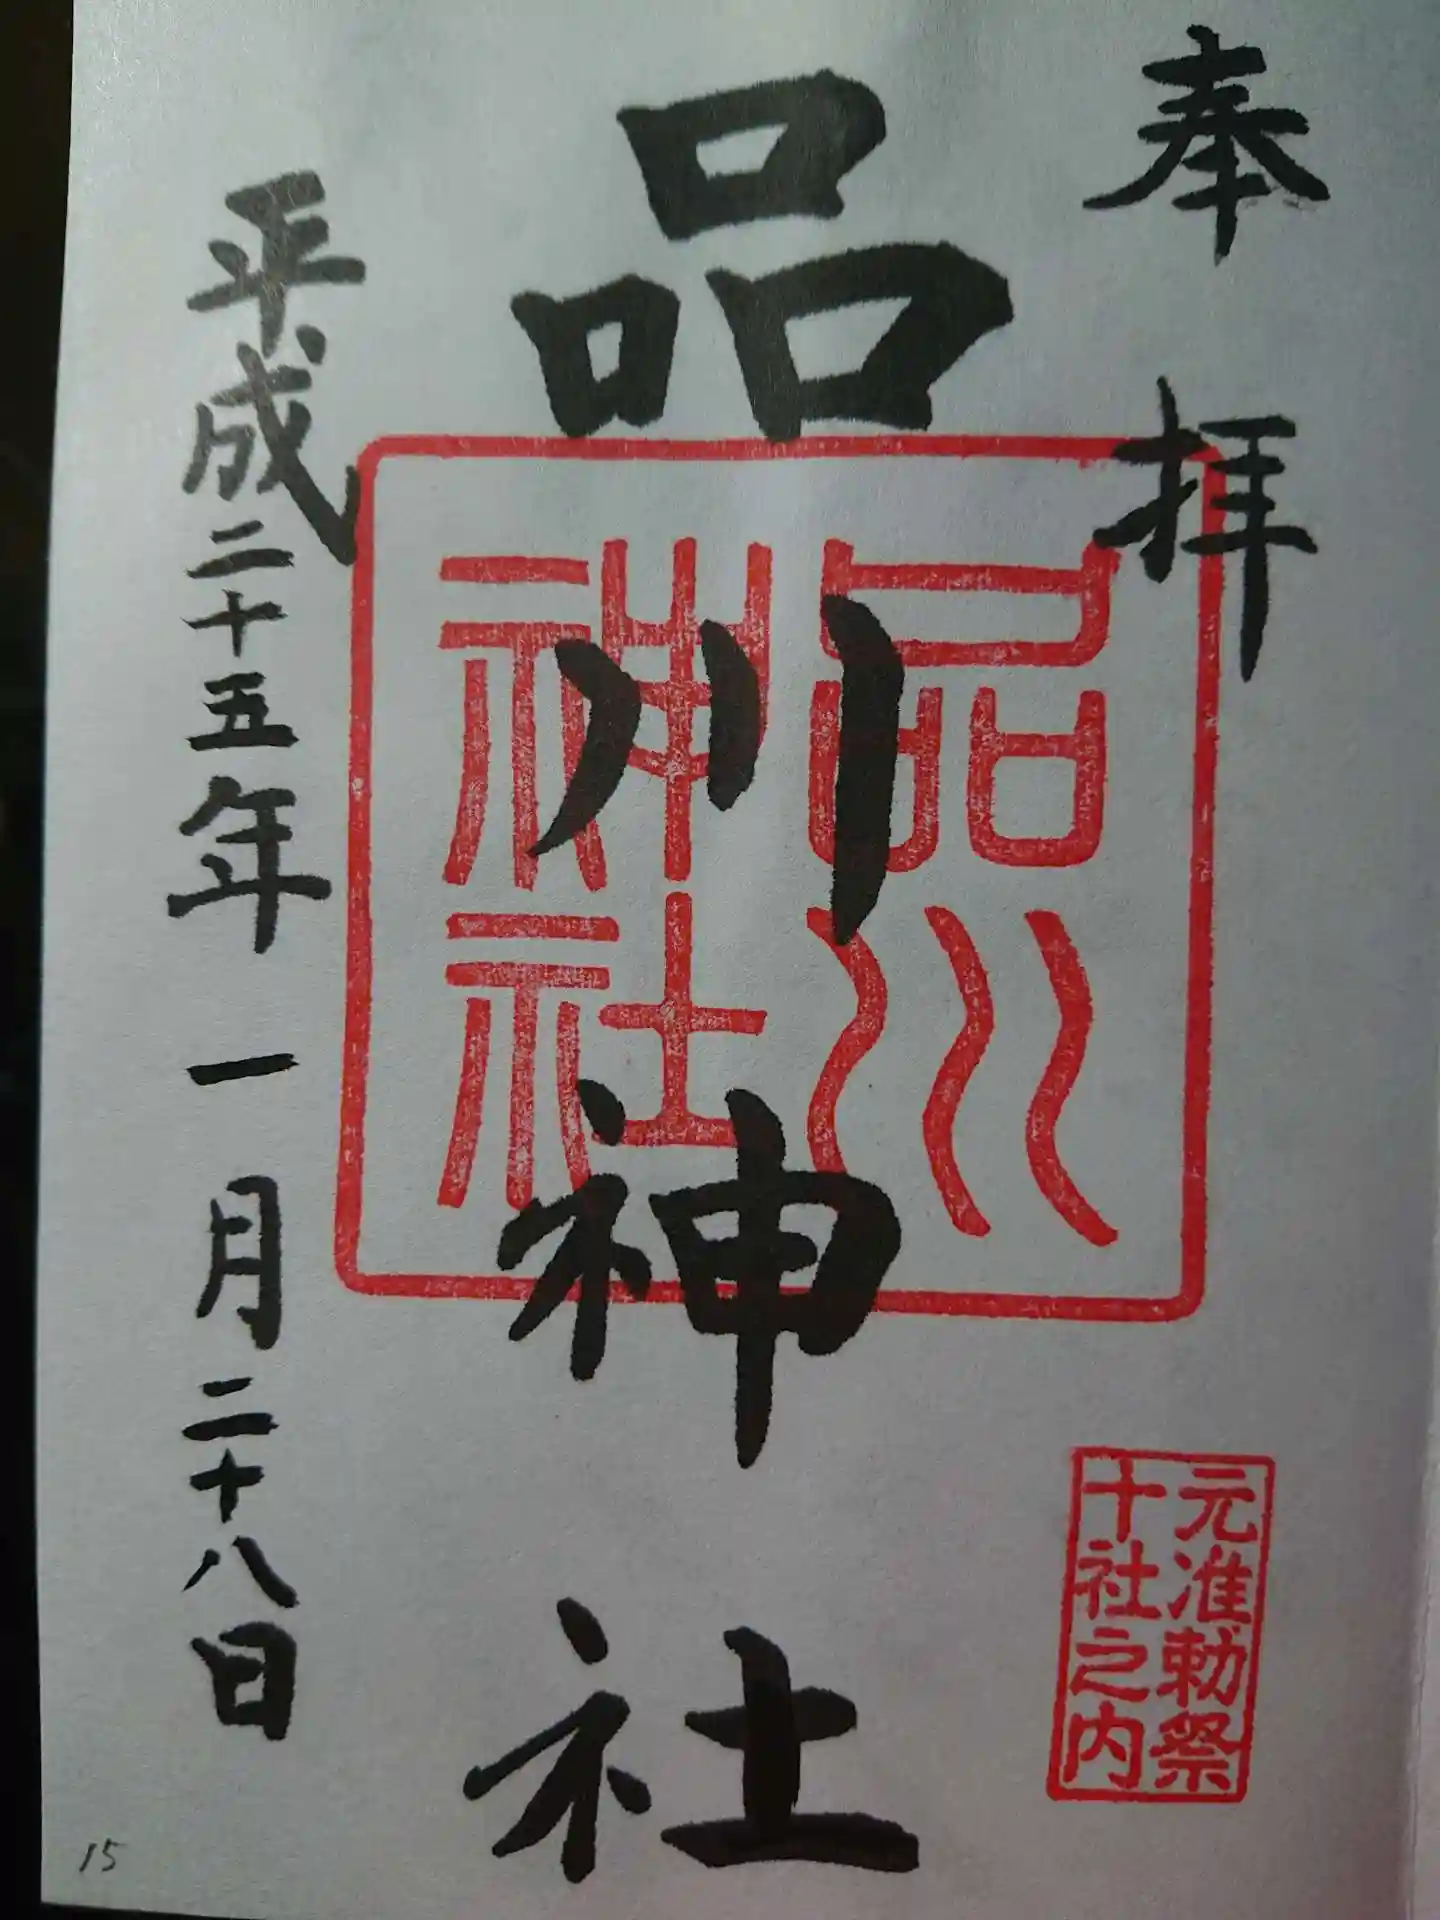 奉拝
元准勅祭
十社之内
品川神社
品川
神社
平成二十五年一月二十八日
15